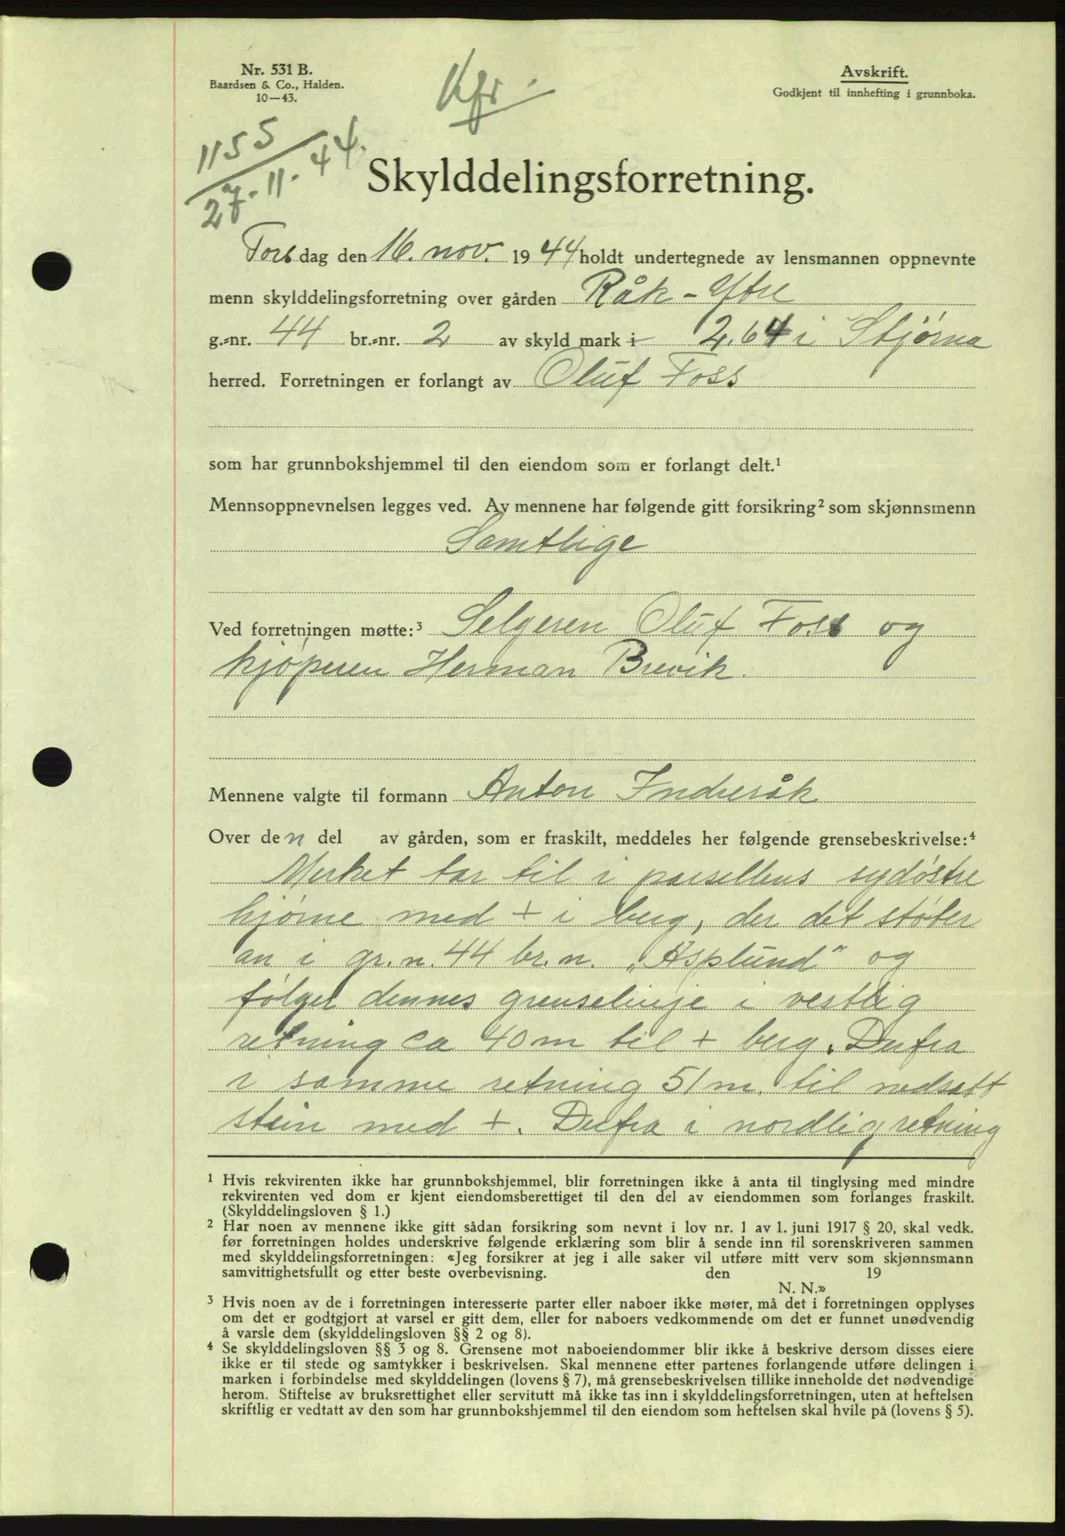 Nr. 531 B.
Baardsen & Co., Halden.
10—43.
Kfr.
Avskrift.
Godkjent til innhefting i grunnboka.
1155
27-11-44.
Skylddelingsforretning.
Torsdag den 16. nov. 1944 holdt undertegnede av lensmannen oppnevnte
menn skylddelingsforretning over gården Råk-Ytre
g.-nr. 44 br.-nr. 2 av skyld mark i 2.64 i Stjørna
herred. Forretningen er forlangt av Oluf Foss
som har grunnbokshjemmel til den eiendom som er forlangt delt.¹
Mennsoppnevnelsen legges ved. Av mennene har følgende gitt forsikring² som skjønnsmenn
Samtlige
Ved forretningen møtte:³ Selgeren Oluf Foss og
kjøperen Herman Brevik.
Mennene valgte til formann Anton Indreråk
Over den del av gården, som er fraskilt, meddeles her følgende grensebeskrivelse:⁴
Merket tar til i parsellens sydøstre
hjørne med + i berg, der det støter
an i gr.n. 44 br.n. „Asplund" og
følger dennes grenselinje i vestlig
retning ca 40 m til + berg. Derfra
i samme retning 51 m. til nedsatt
stein med +. Derfra i nordlig retning
¹ Hvis rekvirenten ikke har grunnbokshjemmel, blir forretningen ikke å anta til tinglysing med mindre
rekvirenten ved dom er kjent eiendomsberettiget til den del av eiendommen som forlanges fraskilt.
(Skylddelingsloven § 1.)
² Har noen av mennene ikke gitt sådan forsikring som nevnt i lov nr. 1 av 1. juni 1917 § 20, skal vedk.
før forretningen holdes underskrive følgende erklæring som blir å sende inn til sorenskriveren sammen
med skylddelingsforretningen: «Jeg forsikrer at jeg i alle saker vil utføre mitt verv som skjønnsmann
samvittighetsfullt og etter beste overbevisning. den 19
N. N.»
³ Hvis noen av de i forretningen interesserte parter eller naboer ikke møter, må det i forretningen opplyses
om det er godtgjort at varsel er gitt dem, eller for naboers vedkommende om det er funnet unødvendig
å varsle dem (skylddelingsloven §§ 2 og 8).
⁴ Se skylddelingsloven §§ 3 og 8. Grensene mot naboeiendommer blir ikke å beskrive dersom disses eiere
ikke er til stede og samtykker i beskrivelsen. Skal mennene etter partenes forlangende utføre delingen i
marken i forbindelse med skylddelingen (lovens § 7), må grensebeskrivelsen tillike inneholde det nødvendige
herom. Stiftelse av bruksrettighet eller servitutt må ikke tas inn i skylddelingsforretningen, uten at heftelsen
skriftlig er vedtatt av den som har grunnbokshjemmel til den eiendom som heftelsen skal hvile på (lovens § 5).